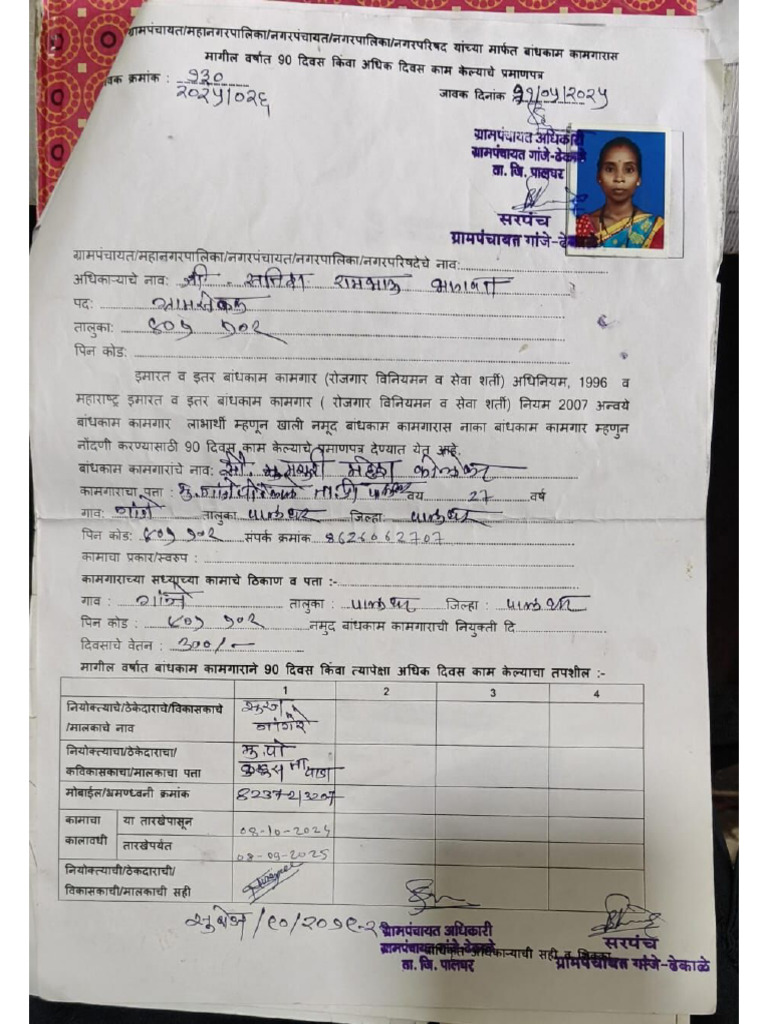 ग्रामपंचायत/महानगरपालिका/नगरपंचायत/नगरपालिका/नगरपरिषद यांच्या मार्फत बांधकाम कामगारास
मागील वर्षात 90 दिवस किंवा अधिक दिवस काम केल्याचे प्रमाणपत्र
वक क्रमांक : १३० जावक दिनांक २१/०५/२०२५
२०२५/०२६
ग्रामपंचायत अधिकारी
ग्रामपंचायत गांजे-ढेकाळे
ता. जि. पालघर
सरपंच
ग्रामपंचायत गांजे-ढेकाळे
ग्रामपंचायत/महानगरपालिका/नगरपंचायत/नगरपालिका/नगरपरिषदेचे नाव:
अधिकाऱ्याचे नाव: श्री. रामभाऊ
पद: ग्रामसेवक
तालुका: ४०१ ५०२
पिन कोड:
इमारत व इतर बांधकाम कामगार (रोजगार विनियमन व सेवा शर्ती) अधिनियम, 1996 व
महाराष्ट्र इमारत व इतर बांधकाम कामगार ( रोजगार विनियमन व सेवा शर्ती) नियम 2007 अन्वये
बांधकाम कामगार लाभार्थी म्हणून खाली नमूद बांधकाम कामगारास नाका बांधकाम कामगार म्हणुन
नोंदणी करण्यासाठी 90 दिवस काम केल्याचे प्रमाणपत्र देण्यात येत आहे.
बांधकाम कामगारांचे नाव: सौ. महेश
कामगाराचा पत्ता : मु. गांजे वय 27 वर्ष
गाव: गांजे तालुका पालघर जिल्हा: पालघर
पिन कोड: ४०१ ५०२ संपर्क क्रमांक 8626062707
कामाचा प्रकार/स्वरुप :
कामगाराच्या सध्याच्या कामाचे ठिकाण व पत्ता :-
गाव : गांजे तालुका : पालघर जिल्हा : पालघर
पिन कोड : ४०१ ५०२ नमुद बांधकाम कामगाराची नियुक्ती दि
दिवसाचे वेतन : ३००/-
मागील वर्षात बांधकाम कामगाराने 90 दिवस किंवा त्यापेक्षा अधिक दिवस काम केल्याचा तपशील :-
1 2 3 4
नियोक्त्याचे/ठेकेदाराचे/विकासकाचे
/मालकाचे नाव
नियोक्त्याचा/ठेकेदाराचा/ मु. पो
कविकासकाचा/मालकाचा पत्ता
मोबाईल/भ्रमणध्वनी क्रमांक 8237213207
कामाचा या तारखेपासून 08-10-2024
कालावधी तारखेपर्यंत 08-09-2025
नियोक्त्याची/ठेकेदाराची/
विकासकाची/मालकाची सही
ग्रामपंचायत अधिकारी सरपंच
ग्रामपंचायत गांजे-ढेकाळे ग्रामपंचायत गांजे-ढेकाळे
ता. जि. पालघर